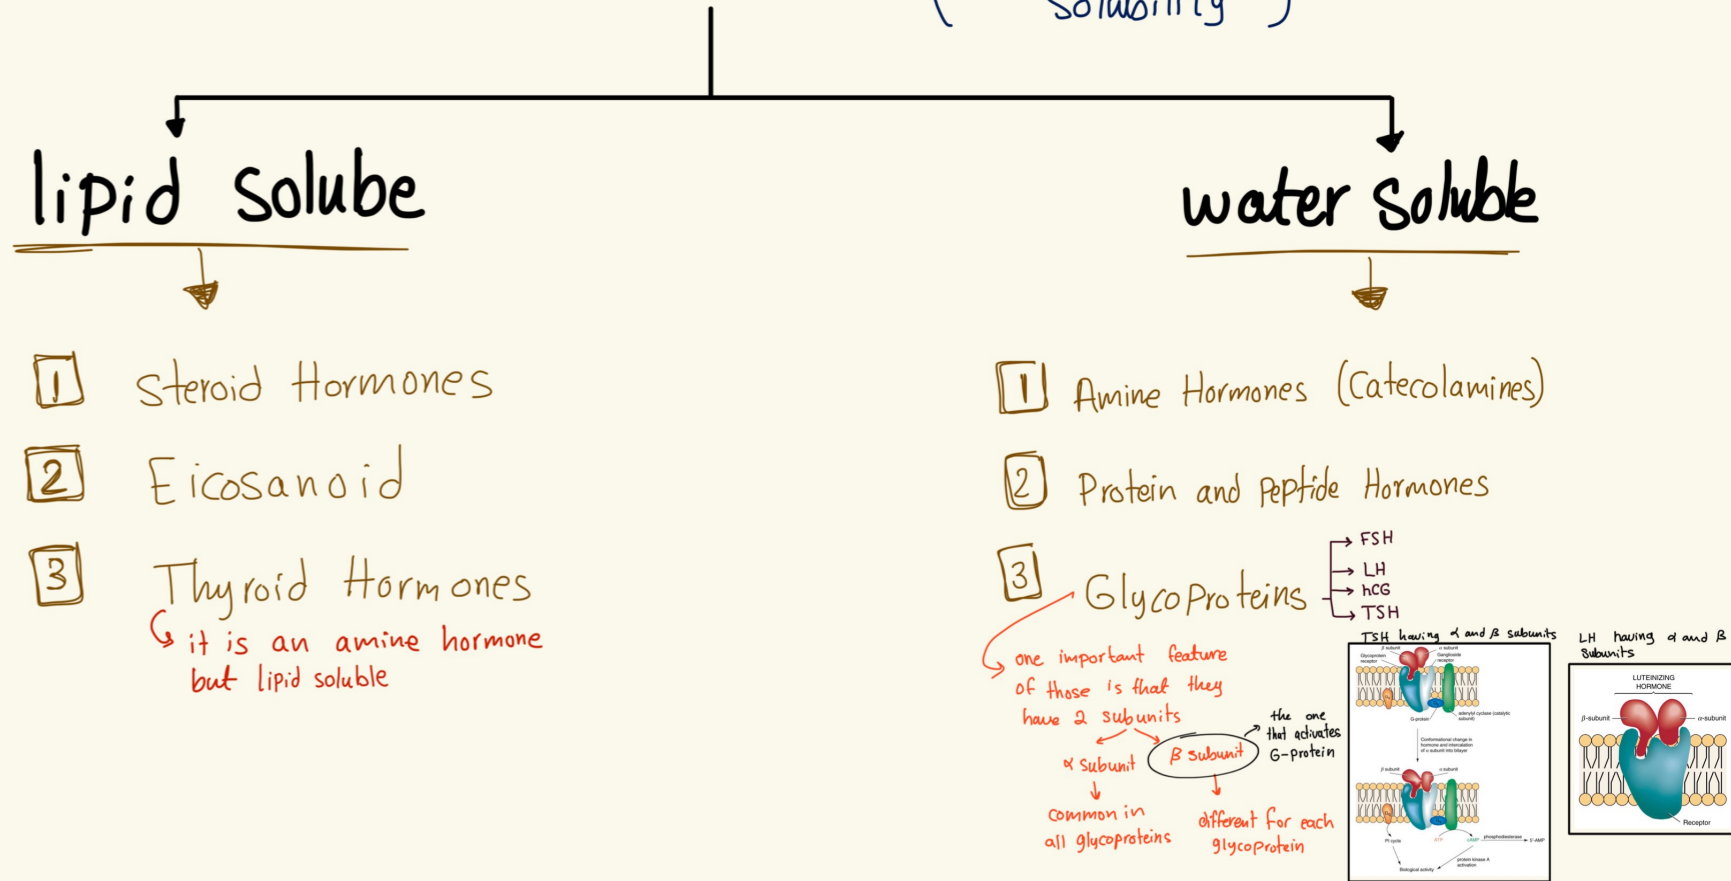 ( Solubility )
lipid Solube
water Soluble
1 Steroid Hormones
2 Eicosanoid
3 Thyroid Hormones
it is an amine hormone
but lipid soluble
1 Amine Hormones (Catecolamines)
2 Protein and peptide Hormones
3 Glycoproteins
FSH
LH
hCG
TSH
one important feature
of those is that they
have 2 subunits
α subunit
common in
all glycoproteins
β subunit
different for each
glycoprotein
the one
that activates
G-protein
TSH having α and β subunits
β subunit
α subunit
Glycoprotein
receptor
Ganglioside
receptor
G-protein
adenylyl cyclase (catalytic
subunit)
Conformational change in
hormone and intercalation
of α subunit into bilayer
β subunit
α subunit
ATP
cAMP
phosphodiesterase
5'-AMP
PI cycle
protein kinase A
activation
Biological activity
LH having α and β
subunits
LUTEINIZING
HORMONE
β-subunit
α-subunit
Receptor